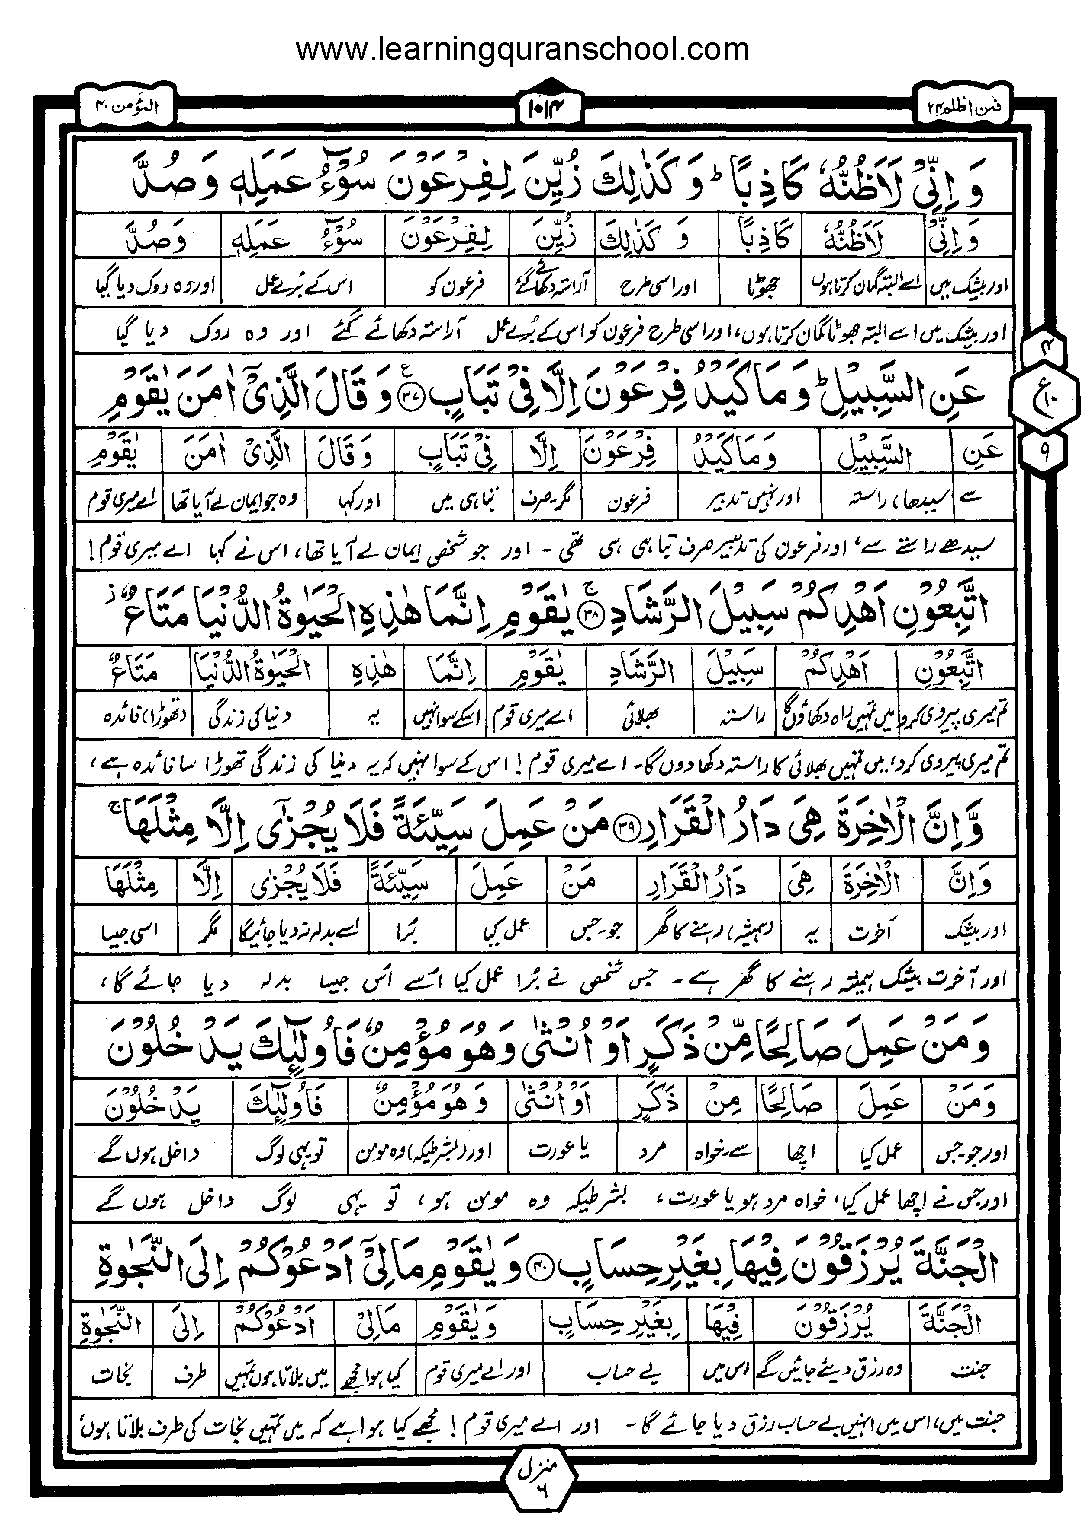 www.learningquranschool.com
فمن اظلم ۲۴
۱۰۱۴
المؤمن ۴۰
وَ اِنِّیْ لَاَظُنُّهٗ كَاذِبًا ؕ وَ كَذٰلِكَ زُیِّنَ لِفِرْعَوْنَ سُوْٓءُ عَمَلِهٖ وَ صُدَّ
وَ اِنِّیْ لَاَظُنُّهٗ كَاذِبًا وَ كَذٰلِكَ زُیِّنَ لِفِرْعَوْنَ سُوْٓءُ عَمَلِهٖ وَ صُدَّ
اور بیشک میں اسے البتہ گمان کرتا ہوں جھوٹا اور اسی طرح آراستہ دکھائے گئے فرعون کو اس کے بُرے عمل اور وہ روک دیا گیا
اور بیشک میں اسے البتہ جھوٹا گمان کرتا ہوں، اور اسی طرح فرعون کو اس کے بُرے عمل آراستہ دکھائے گئے اور وہ روک دیا گیا
عَنِ السَّبِیْلِ ؕ وَ مَا كَیْدُ فِرْعَوْنَ اِلَّا فِیْ تَبَابٍ ۳۷ ع وَ قَالَ الَّذِیْۤ اٰمَنَ یٰقَوْمِ
۴
ع ۱۰
۹
عَنِ السَّبِیْلِ وَ مَا كَیْدُ فِرْعَوْنَ اِلَّا فِیْ تَبَابٍ وَ قَالَ الَّذِیْۤ اٰمَنَ یٰقَوْمِ
سے (سیدھا) راستہ اور نہیں تدبیر فرعون مگر۔صرف تباہی میں اور کہا وہ جو ایمان لے آیا تھا اے میری قوم
سیدھے راستے سے، اور فرعون کی تدبیر صرف تباہی ہی تھی - اور جو شخص ایمان لے آیا تھا، اس نے کہا اے میری قوم!
اتَّبِعُوْنِ اَهْدِكُمْ سَبِیْلَ الرَّشَادِ ۳۸ ج یٰقَوْمِ اِنَّمَا هٰذِهِ الْحَیٰوةُ الدُّنْیَا مَتَاعٌ ز
اتَّبِعُوْنِ اَهْدِكُمْ سَبِیْلَ الرَّشَادِ یٰقَوْمِ اِنَّمَا هٰذِهِ الْحَیٰوةُ الدُّنْیَا مَتَاعٌ
تم میری پیروی کرو میں تمہیں راہ دکھاؤں گا راستہ بھلائی اے میری قوم اسکے سوا نہیں یہ دنیا کی زندگی (تھوڑا) فائدہ
تم میری پیروی کرو، میں تمہیں بھلائی کا راستہ دکھا دوں گا۔ اے میری قوم! اس کے سوا نہیں کہ یہ دنیا کی زندگی تھوڑا سا فائدہ ہے،
وَّ اِنَّ الْاٰخِرَةَ هِیَ دَارُ الْقَرَارِ ۳۹ مَنْ عَمِلَ سَیِّئَةً فَلَا یُجْزٰۤی اِلَّا مِثْلَهَا ۚ
وَ اِنَّ الْاٰخِرَةَ هِیَ دَارُ الْقَرَارِ مَنْ عَمِلَ سَیِّئَةً فَلَا یُجْزٰۤی اِلَّا مِثْلَهَا
اور بیشک آخرت یہ (ہمیشہ) رہنے کا گھر جو۔جس عمل کیا بُرا اسے بدلہ نہ دیا جائیگا مگر اسی جیسا
اور آخرت بیشک ہمیشہ رہنے کا گھر ہے - جس شخص نے بُرا عمل کیا اُسے اُس جیسا بدلہ دیا جائے گا،
وَ مَنْ عَمِلَ صَالِحًا مِّنْ ذَكَرٍ اَوْ اُنْثٰی وَ هُوَ مُؤْمِنٌ فَاُولٰٓئِكَ یَدْخُلُوْنَ
وَ مَنْ عَمِلَ صَالِحًا مِنْ ذَكَرٍ اَوْ اُنْثٰی وَ هُوَ مُؤْمِنٌ فَاُولٰٓئِكَ یَدْخُلُوْنَ
اور جو جس عمل کیا اچھا سے۔خواہ مرد یا عورت اور (بشرطیکہ) وہ مومن تو یہی لوگ داخل ہوں گے
اور جس نے اچھا عمل کیا، خواہ مرد ہو یا عورت، بشرطیکہ وہ مومن ہو، تو یہی لوگ داخل ہوں گے
الْجَنَّةَ یُرْزَقُوْنَ فِیْهَا بِغَیْرِ حِسَابٍ ۴۰ وَ یٰقَوْمِ مَا لِیْۤ اَدْعُوْكُمْ اِلَی النَّجٰوةِ
الْجَنَّةَ یُرْزَقُوْنَ فِیْهَا بِغَیْرِ حِسَابٍ وَ یٰقَوْمِ مَا لِیْۤ اَدْعُوْكُمْ اِلَی النَّجٰوةِ
جنت وہ رزق دیئے جائیں گے اس میں بے حساب اور اے میری قوم کیا ہوا مجھے میں بلاتا ہوں تمہیں طرف نجات
جنت میں، اس میں انہیں بے حساب رزق دیا جائے گا - اور اے میری قوم! مجھے کیا ہوا ہے کہ میں تمہیں نجات کی طرف بلاتا ہوں،
منزل ۶